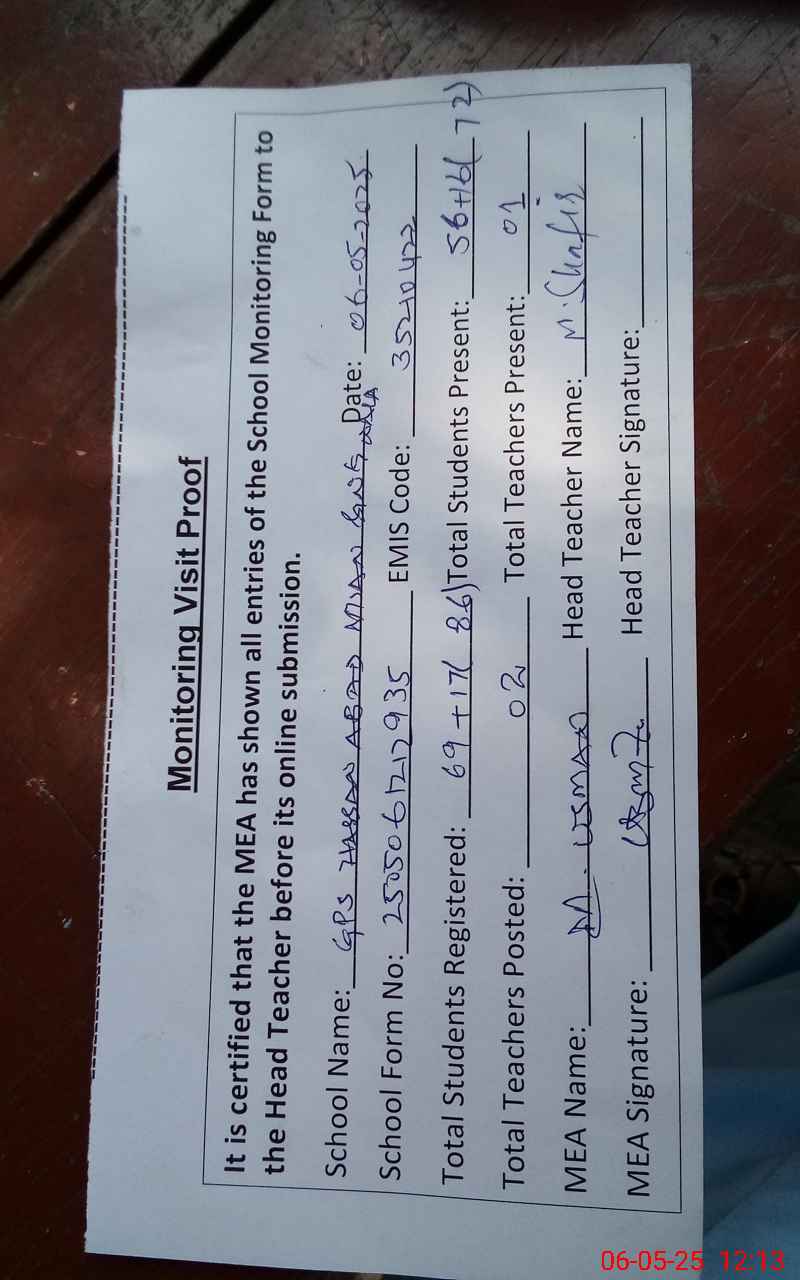 Monitoring Visit Proof
It is certified that the MEA has shown all entries of the School Monitoring Form to
the Head Teacher before its online submission.
School Name: GPS HASSAN ABAD MIAN Date: 06-05-2025
School Form No: 2505061212935 EMIS Code: 35210422
Total Students Registered: 69+17(86) Total Students Present: 56+16(72)
Total Teachers Posted: 02 Total Teachers Present: 01
MEA Name: M. USMAN Head Teacher Name: M. Shafiq
MEA Signature: Head Teacher Signature:
06-05-25 12:13